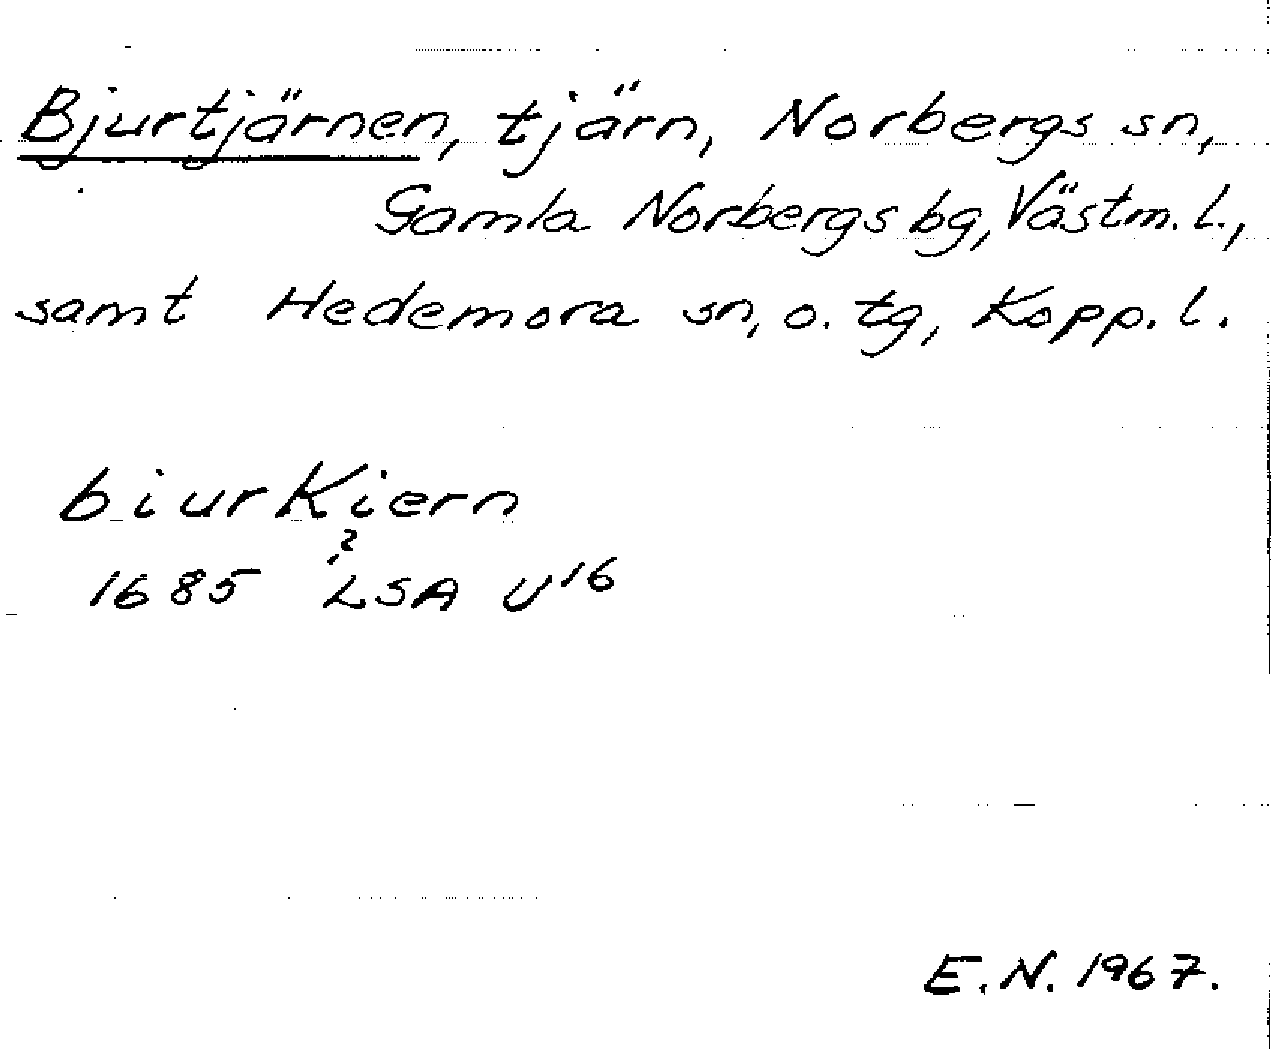 Bjurtjärnen, tjärn, Norbergs sn,
Gamla Norbergs bg, Västm. l.,
samt Hedemora sn, o. tg, Kopp. l.
biurKiern
?
1685 LSA U16
E.N. 1967.